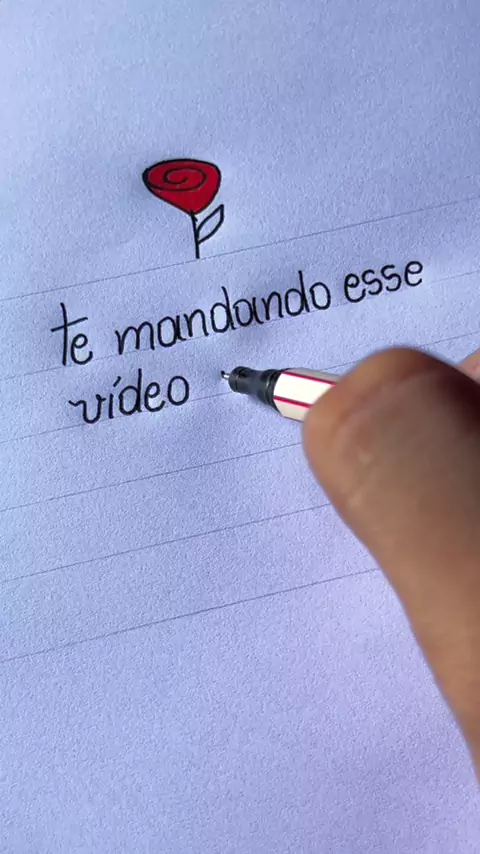 te mandando esse
vídeo